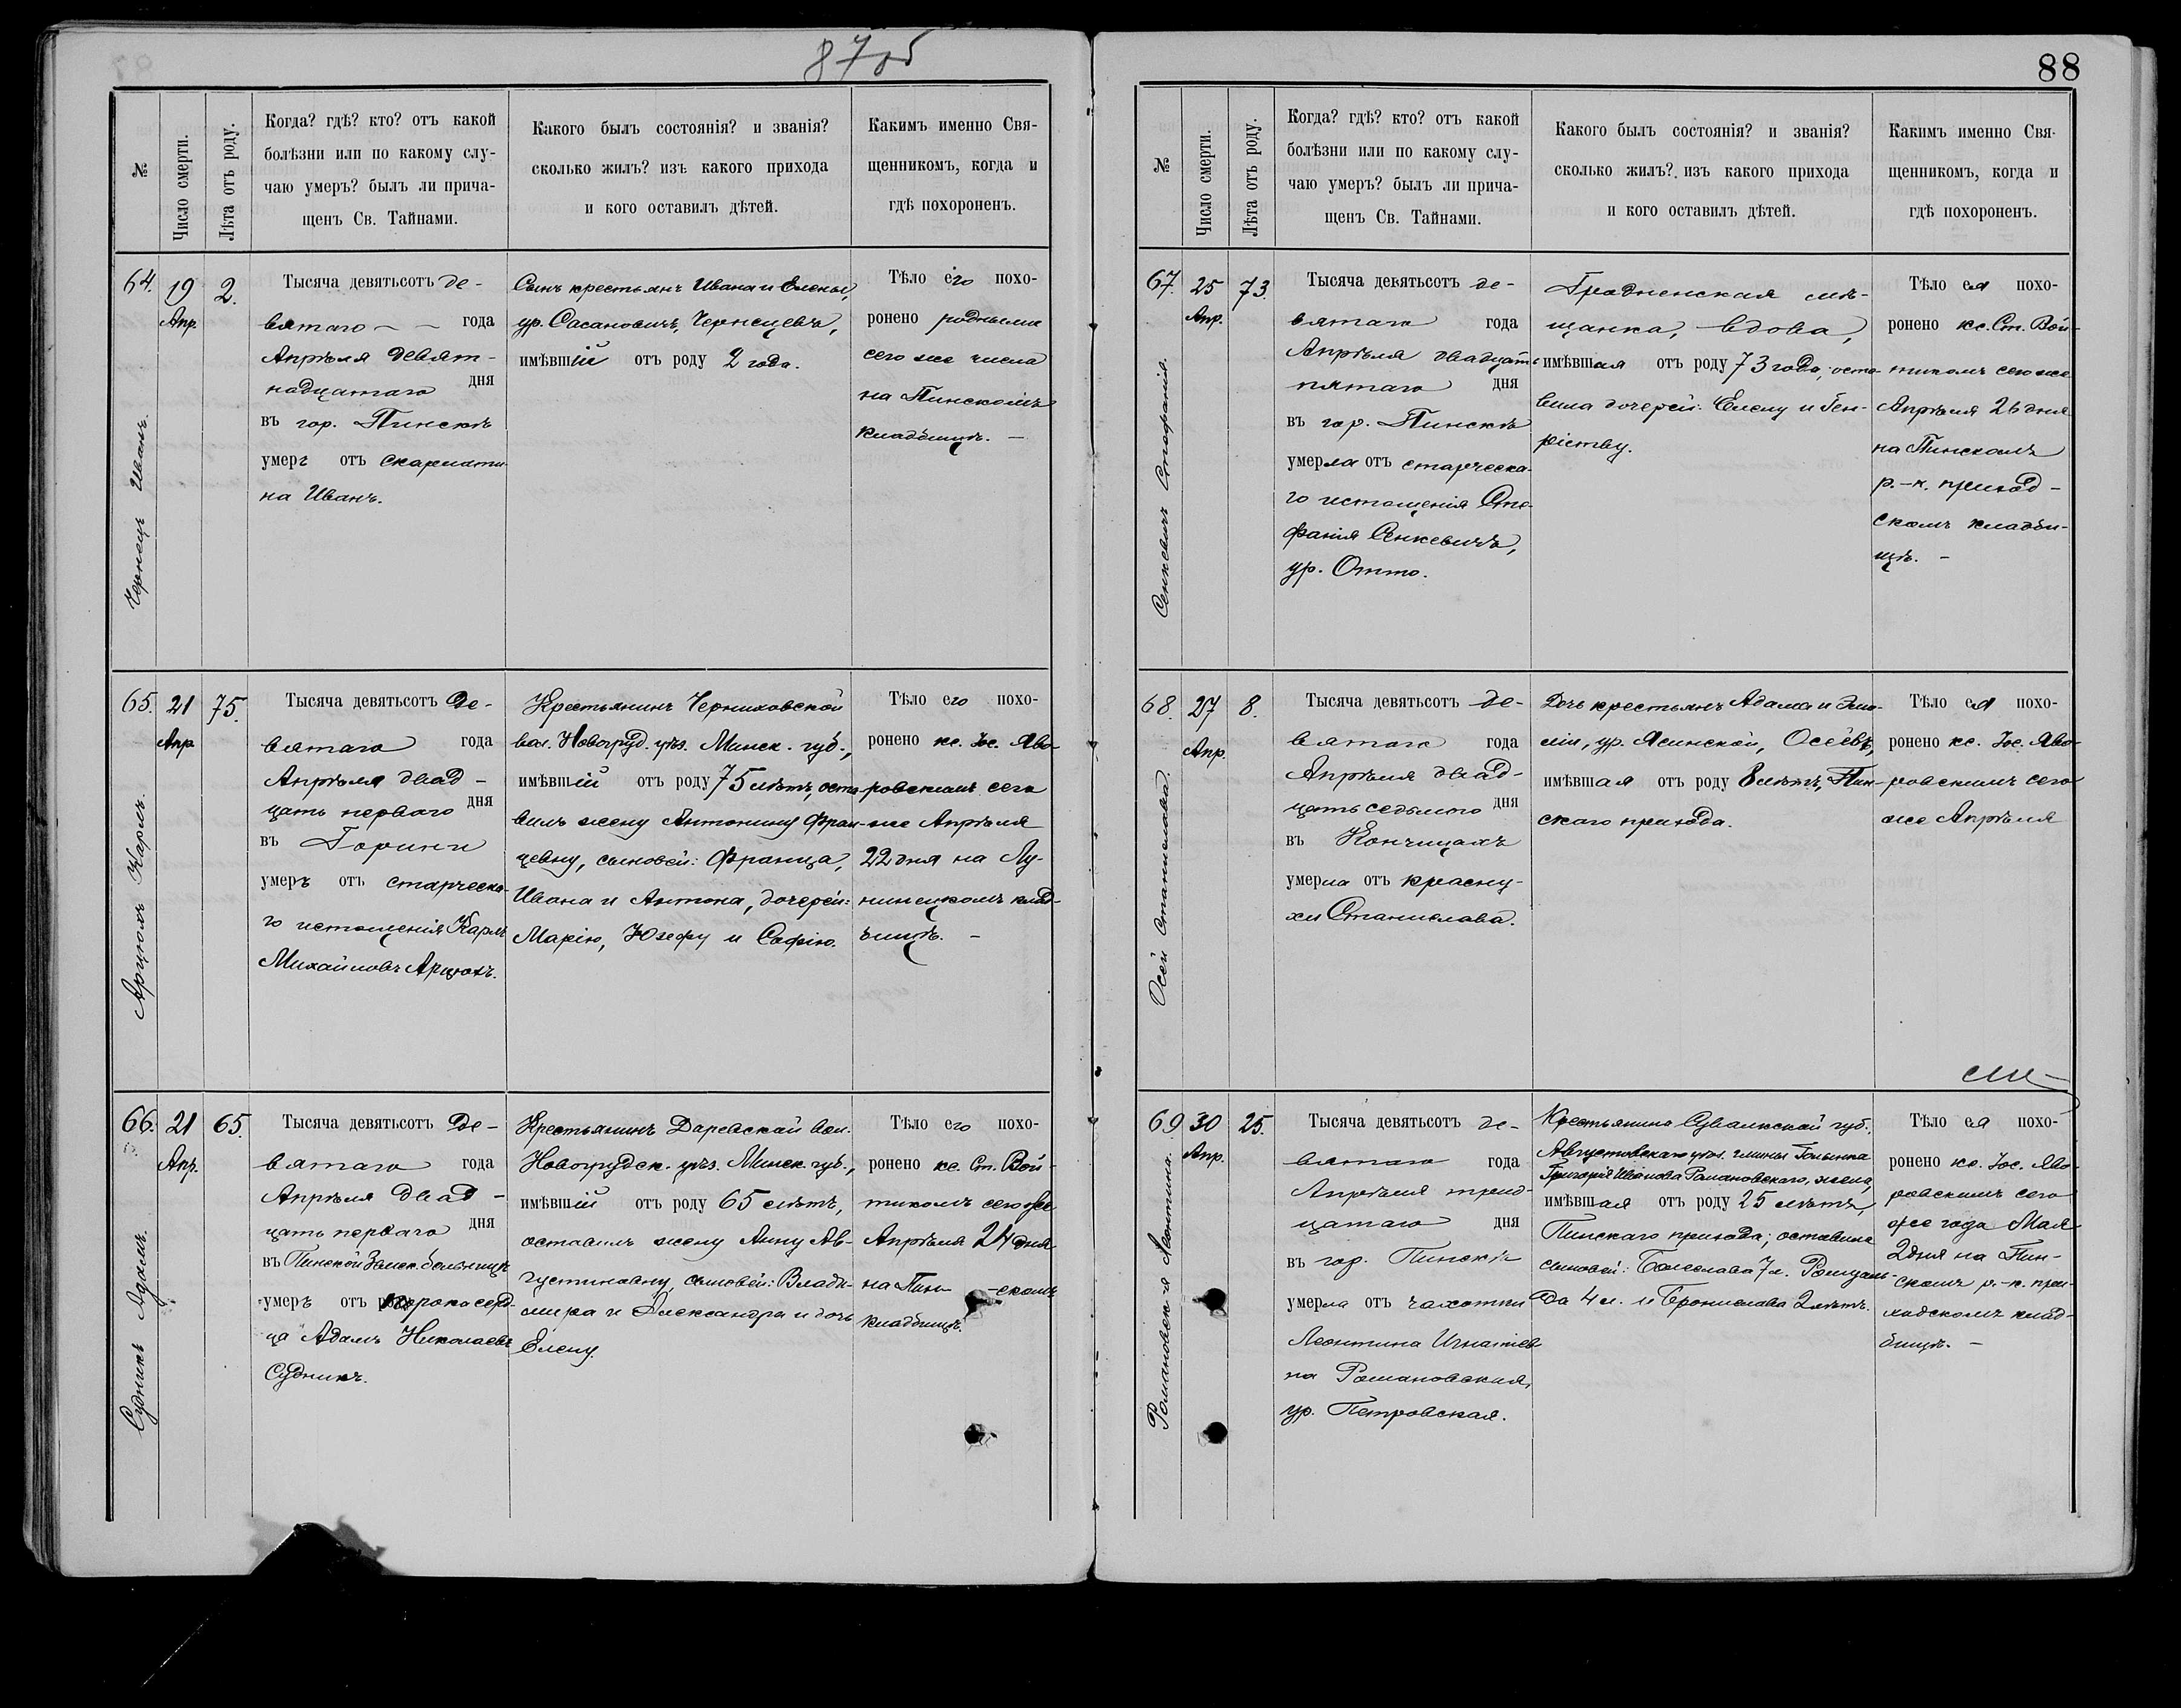 87об
№
Число смерти.
Лѣта отъ роду.
Когда? гдѣ? кто? отъ какой
болѣзни или по какому слу-
чаю умеръ? былъ ли прича-
щенъ Св. Тайнами.
Какого былъ состоянія? и званія?
сколько жилъ? изъ какого прихода
и кого оставилъ дѣтей.
Какимъ именно Свя-
щенникомъ, когда и
гдѣ похороненъ.
64.
Чернецъ Иванъ.
19
Апр.
2.
Тысяча девятьсотъ де-
вятаго — — года
Апрѣля девят-
надцатаго дня
въ гор. Пинскѣ
умеръ отъ скарлати-
на Иванъ.
Сынъ крестьянъ Ивана и Елены,
ур. Сасановичъ, Чернецевъ,
имѣвшій отъ роду 2 года.
Тѣло его похо-
ронено родными
сего же числа
на Пинскомъ
кладбищѣ. —
65.
Арцюхъ Карлъ.
21
Апр
75.
Тысяча девятьсотъ де-
вятаго года
Апрѣля двад-
цать перваго дня
въ Горыни
умеръ отъ старческа-
го истощенія Карлъ
Михайловъ Арцюхъ.
Крестьянинъ Черниховской
вол. Новогруд. уѣз. Минск. губ.,
имѣвшій отъ роду 75 лѣтъ, оста-
вилъ жену Антонину Фран-
цевну, сыновей: Франца,
Ивана и Антона, дочерей:
Марію, Юзефу и Софію.
Тѣло его похо-
ронено кс. Іос. Яво-
ровскимъ сего
же Апрѣля
22 дня на Лу-
нинецкомъ клад-
бищѣ. —
66.
Судникъ Адамъ.
21
Апр.
65.
Тысяча девятьсотъ де-
вятаго года
Апрѣля двад-
цать перваго дня
въ Пинской Замск. больницѣ
умеръ отъ порока серд-
ца Адамъ Николаевъ
Судникъ.
Крестьянинъ Даревской вол.
Новогрудск. уѣз. Минск. губ.,
имѣвшій отъ роду 65 лѣтъ,
оставилъ жену Анну Ав-
густиновну, сыновей: Влади-
мира и Александра и дочь
Елену.
Тѣло его похо-
ронено кс. Ст. Вой-
тикомъ сего же
Апрѣля 24 дня
на Пин- -скомъ
кладбищѣ.
88
№
Число смерти.
Лѣта отъ роду.
Когда? гдѣ? кто? отъ какой
болѣзни или по какому слу-
чаю умеръ? былъ ли прича-
щенъ Св. Тайнами.
Какого былъ состоянія? и званія?
сколько жилъ? изъ какого прихода
и кого оставилъ дѣтей.
Какимъ именно Свя-
щенникомъ, когда и
гдѣ похороненъ.
67.
Сенкевичъ Стефанія.
25
Апр.
73.
Тысяча девятьсотъ де-
вятаго года
Апрѣля двадцать
пятаго дня
въ гор. Пинскѣ
умерла отъ старческа-
го истощенія Сте-
фанія Сенкевичъ,
ур. Отто.
Гродненская мѣ-
щанка, вдова,
имѣвшая отъ роду 73 года; оста-
вила дочерей: Елену и Ген-
ріетву.
Тѣло ея похо-
ронено кс. Ст. Вой-
тикомъ сего же
Апрѣля 26 дня
на Пинскомъ
р.-к. приход-
скомъ кладби-
щѣ. —
68.
Осей Станислава.
27
Апр.
8.
Тысяча девятьсотъ де-
вятаго года
Апрѣля двад-
цать седьмого дня
въ Кончицахъ
умерла отъ красну-
хи Станислава.
Дочь крестьянъ Адама и Эми-
ліи, ур. Ясинской, Осеевъ,
имѣвшая отъ роду 8 лѣтъ, Пин-
скаго прихода.
Тѣло ея похо-
ронено кс. Іос. Яво-
ровскимъ сего
же Апрѣля
69.
Романовская Леонтина.
30
Апр.
25.
Тысяча девятьсотъ де-
вятаго года
Апрѣля трид-
цатаго дня
въ гор. Пинскѣ
умерла отъ чахотки
Леонтина Игнатіев-
на Романовская,
ур. Петровская.
Крестьянина Сувалкской губ.
Августовскаго уѣз. гмины Голынка
Григорія Иванова Романовскаго, жена,
имѣвшая отъ роду 25 лѣтъ,
Пинскаго прихода; оставила
сыновей: Болеслава 7 л. Ромуаль-
да 4 л. и Бронислава 2 лѣтъ.
Тѣло ея похо-
ронено кс. Іос. Яво-
ровскимъ сего
же года Мая
2 дня на Пин-
скомъ р.-к. при-
ходскомъ клад-
бищѣ. —